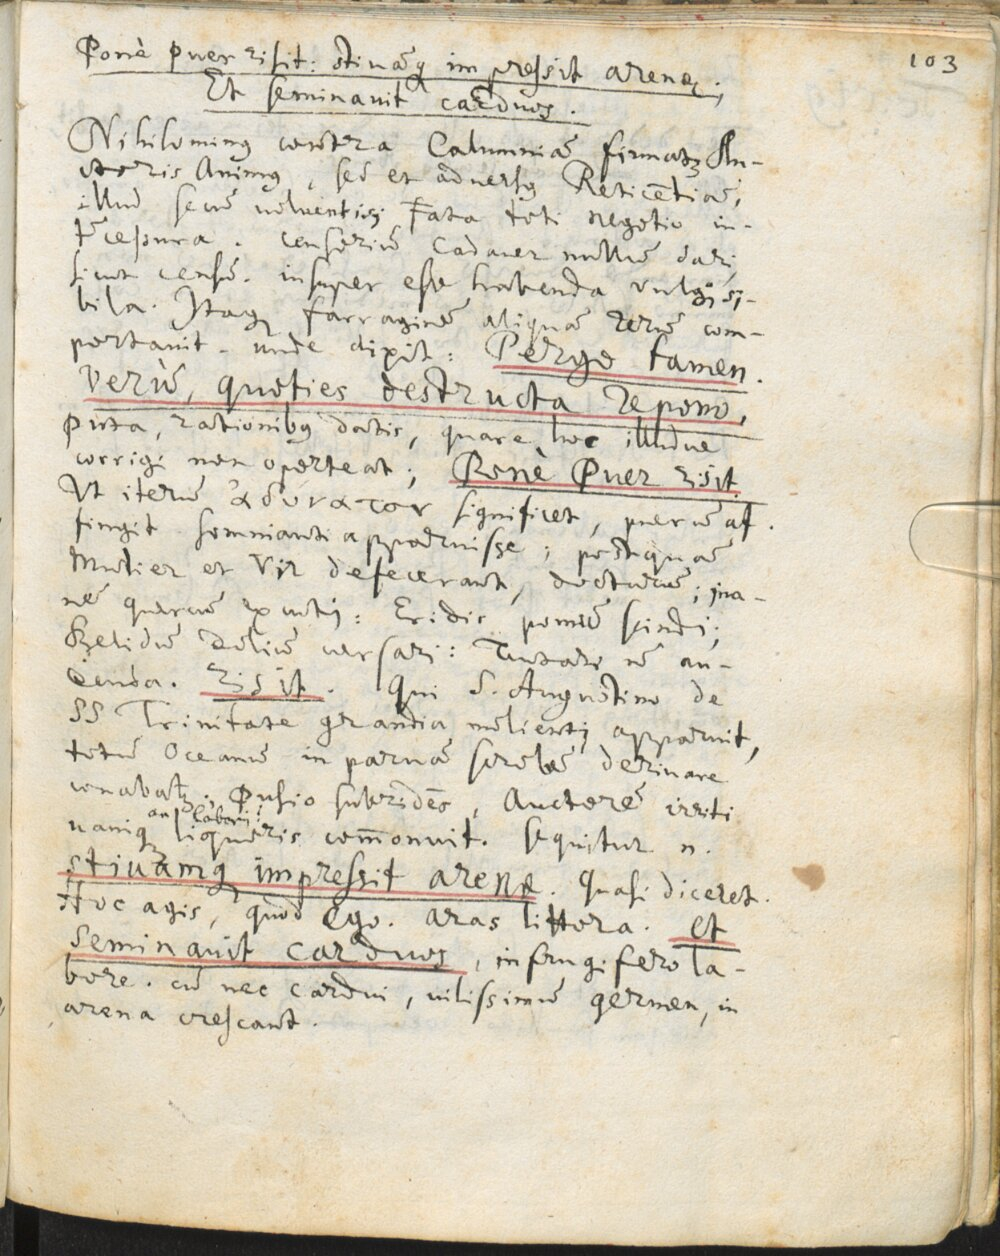 103
Ponè puer risit: stivāq; impressit arenę;
Et seminavit carduos.
Nihilominus contra Calumniā firmatȝ Au-
ctoris Animus, sed et adversus Reticētiā,
illud secū volventis; Fata toti negotio in-
tēcepura. Cadaver nullū dari,
sicut censē. insuper esse habenda vulgi si-
bila. Itaq; farraginē aliquā rerū com-
portavit. unde dixit: Pergo tamen.
Verū, quoties destructa repono,
puta, rationibus datis, quare hoc illudve
corrigi non oporteat; Ponè Puer risit.
Ut iterū ἀδύνατον significet, puerū af-
fingit somnianti apparuisse; postquā
Mulier et Vir defecerant, docturū; ina-
nē quercū excuti: Eridis pomū scindi;
Belidū Doliū versari: Tentari nō au-
denda. Risit. Qui S. Augustino de
SS Trinitate grandia molienti apparuit,
totū Oceanū in parvā scrobē derivare
conabatȝ; Pusio subridēs, Auctorē irriti
vaniq; laboris com̄onuit. Sequitur n.
Stivamq; impressit arenę. Quasi diceret.
Hoc agis, quod ego. aras littora. et
seminavit carduos, infrugifero la-
bore. cū nec cardui, vilissimū germen, in
arena crescant.